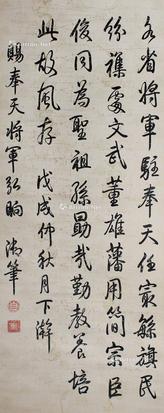 各省將軍駐奉天任最繁旗民
紛雜憂文武董雄藩用簡宗臣
俊同為聖祖孫勖哉勤教養培
此故風存 戊戌仲秋月下澣
賜奉天將軍弘晌 御筆